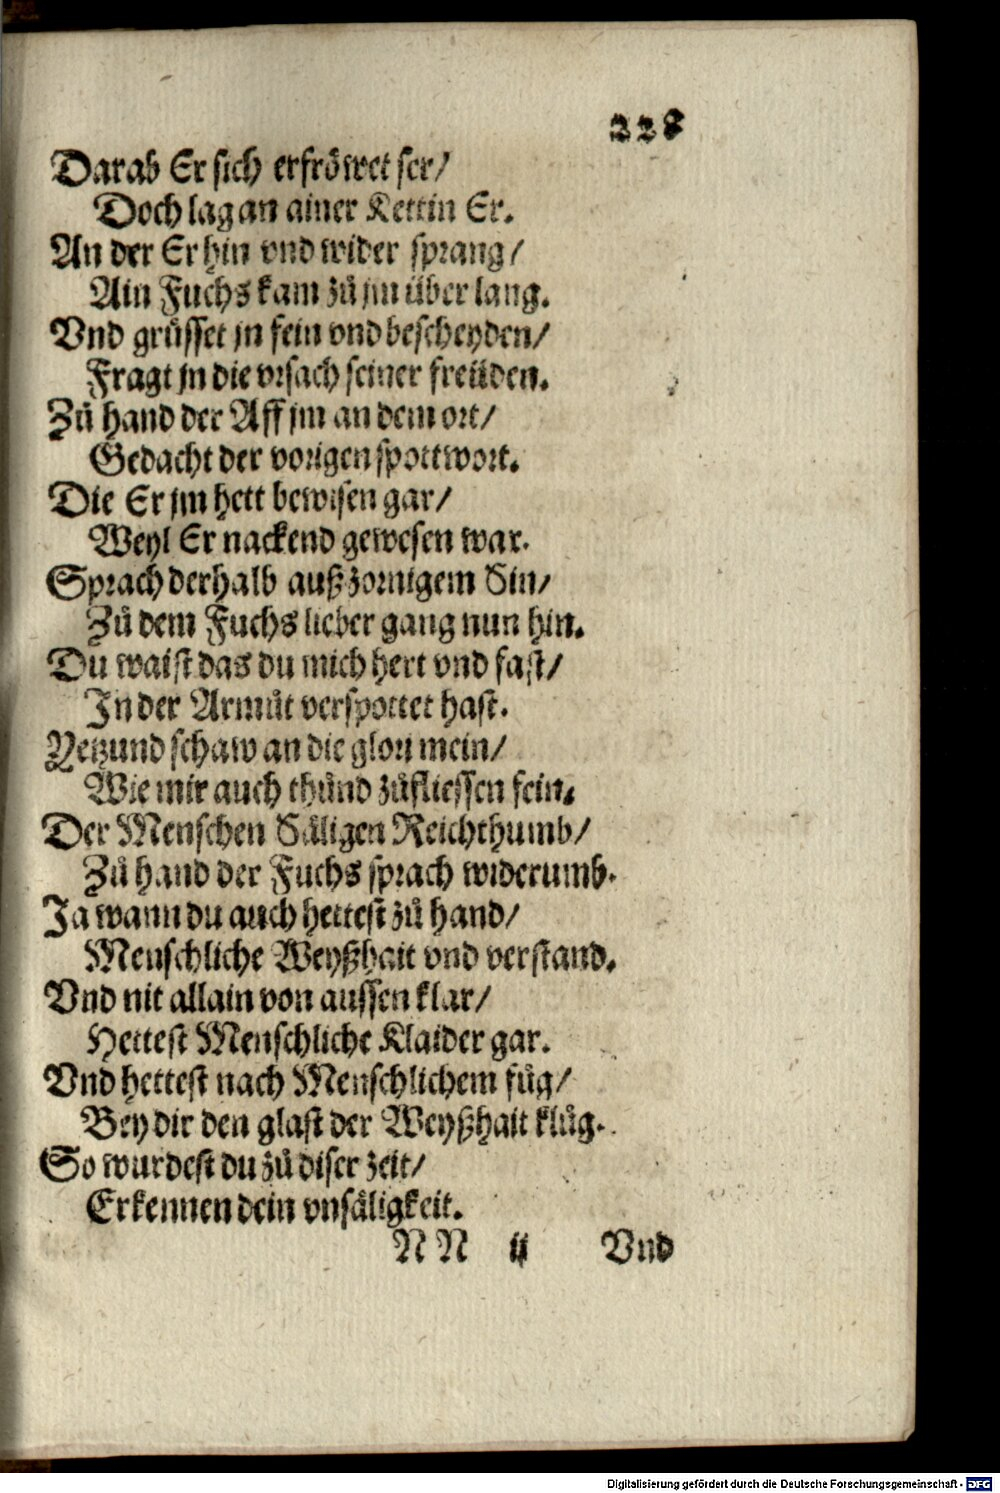 228
Darab Er sich erfröwet ser/
Doch lag an ainer Kettin Er.
An der Er hin vnd wider sprang/
Ain Fuchs kam zů jm über lang.
Vnd grüsset jn fein vnd bescheyden/
Fragt jn die vrsach seiner freüden.
Zů hand der Aff jm an dem ort/
Gedacht der vorigen spottwort.
Die Er jm hett bewisen gar/
Weyl Er nackend gewesen war.
Sprach derhalb auß zornigem Sin/
Zů dem Fuchs lieber gang nun hin.
Du waist das du mich hert vnd fast/
In der Armůt verspottet hast.
Yetzund schaw an die glori mein/
Wie mir auch thůnd zůfliessen fein.
Der Menschen Säligen Reichthumb/
Zů hand der Fuchs sprach widerumb.
Ja wann du auch hettest zů hand/
Menschliche Weyßhait vnd verstand.
Vnd nit allain von aussen klar/
Hettest Menschliche Klaider gar.
Vnd hettest nach Menschlichem fůg/
Bey dir den glast der Weyßhait klůg.
So wurdest du zů diser zeit/
Erkennen dein vnsäligkeit.
N N ij Vnd
Digitalisierung gefördert durch die Deutsche Forschungsgemeinschaft - DFG